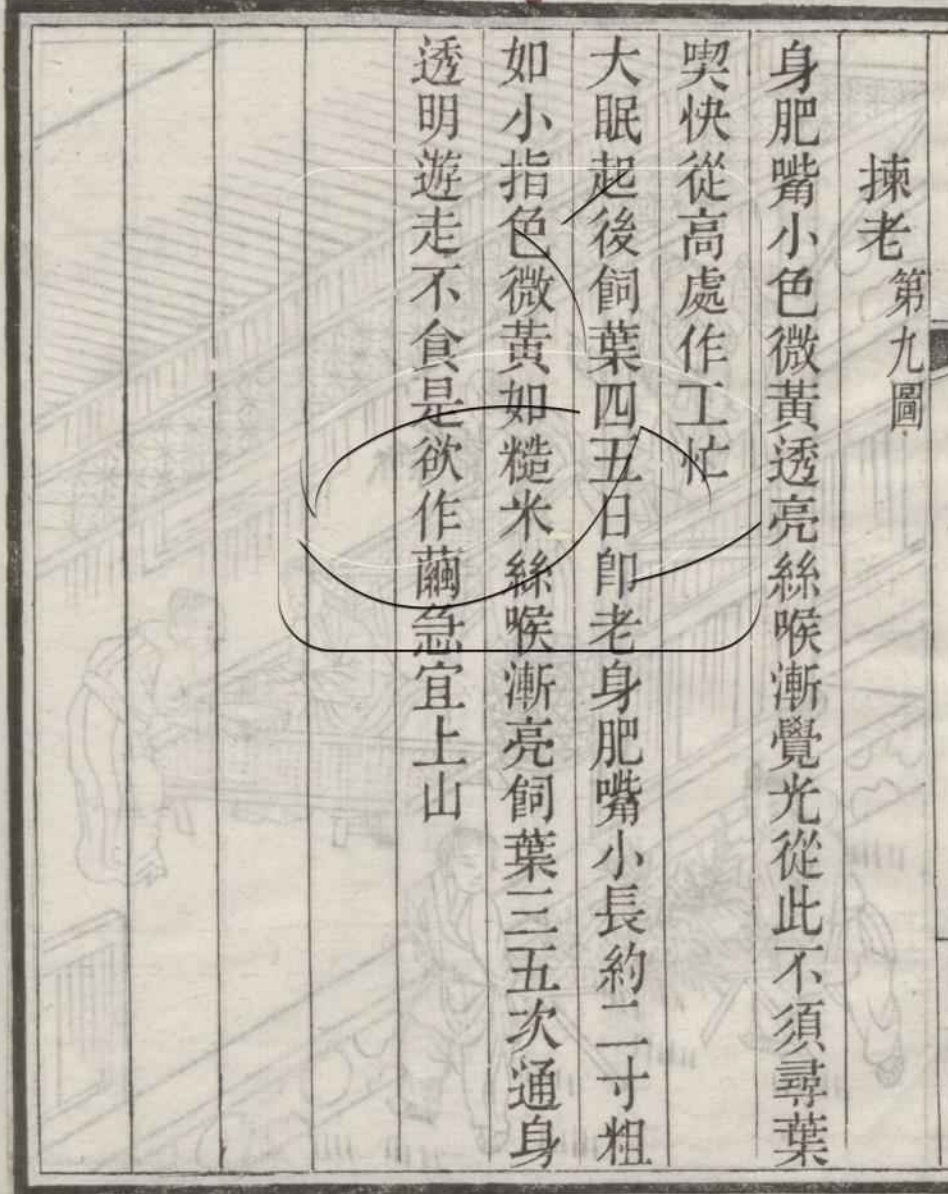 揀老第九圖
身肥嘴小色微黃透亮絲喉漸覺光從此不須尋葉
喫快從高處作工忙
大眠起後飼葉四五日卽老身肥嘴小長約二寸粗
如小指色微黃如糙米絲喉漸亮飼葉三五次通身
透明遊走不食是欲作繭急宜上山